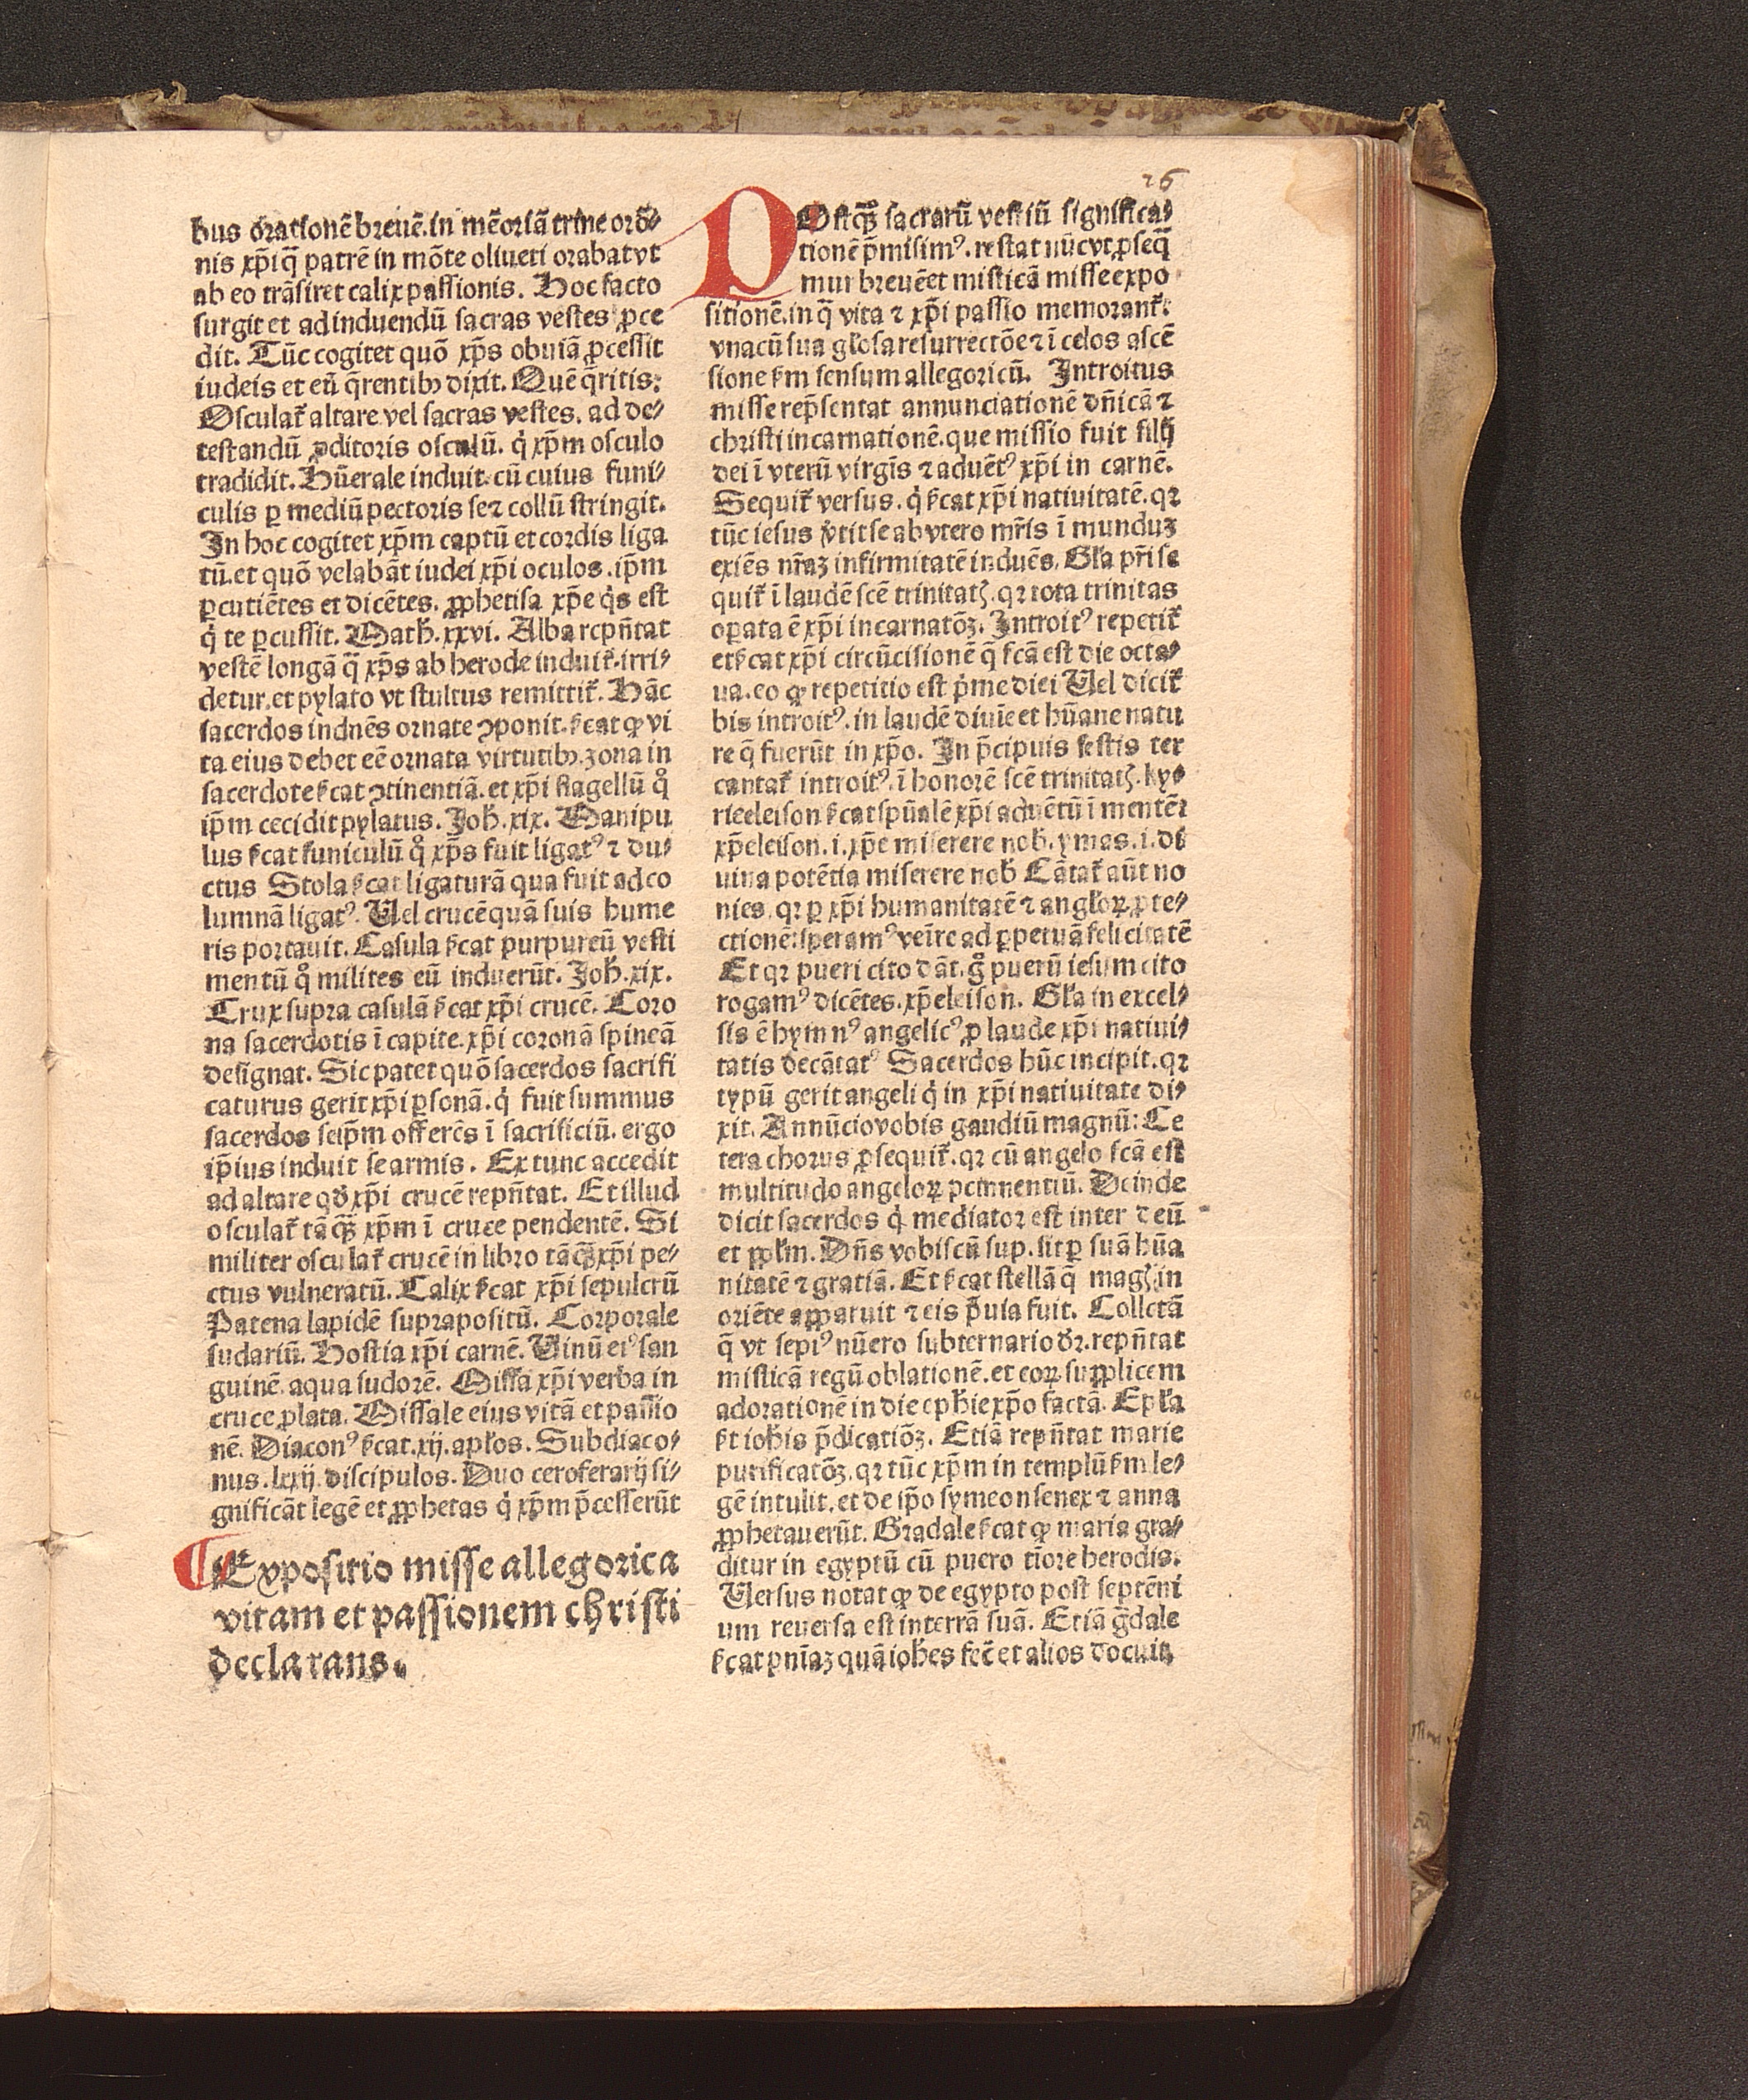 26
bus orationē breuē.in mēoriā trine orō⸗
nis xp̄i q̄ patrē in mōte oliueti orabat vt
ab eo trāsiret calix passionis. Hoc facto
surgit et ad induendū sacras vestes ꝓce
dit. Tūc cogitet quō xp̄s obuiā ꝓcessit
iudeis et eū q̄rentibꝰ dixit. Quē q̄ritis:
Osculat᷑ altare vel sacras vestes. ad de⸗
testandū ꝓditoris osculū. q̇ xp̄m osculo
tradidit. Hūerale induit. cū cuius funi⸗
culis ꝑ mediū pectoris se ⁊ collū stringit.
In hoc cogitet xp̄m captū et cordis liga
tū. et quō velabāt iudei xp̄i oculos. ip̄m
ꝑcutiētes et dicētes. ꝓphetisa xp̄e q̇s est
q̇ te ꝑcussit. Math̄. xxvi. Alba repn̄tat
vestē longā q̄ xp̄s ab herode induit᷑. irri⸗
detur. et pylato vt stultus remittit᷑. Hāc
sacerdos induēs ornate ꝯponit. s̄cat ꝙ vi
ta eius debet eē ornata virtutibꝰ. zona in
sacerdote s̄cat ꝯtinentiā. et xp̄i flagellū q̊
ip̄m cecidit pylatus. Joh̄. xix. Manipu
lus s̄cat funiculū q̊ xp̄s fuit ligatꝰ ⁊ du⸗
ctus Stola s̄cat ligaturā qua fuit ad co
lumnā ligatꝰ. Uel crucē quā suis hume
ris portauit. Casula s̄cat purpureū vesti
mentū q̊ milites eū induerūt. Joh̄. xix.
Crux supra casulā s̄cat xp̄i crucē. Coro
na sacerdotis ī capite. xp̄i coronā spineā
designat. Sic patet quō sacerdos sacrifi
caturus gerit xp̄i ꝑsonā. q̇ fuit summus
sacerdos seip̄m offerēs ī sacrificiū. ergo
ip̄ius induit se armis. Ex tunc accedit
ad altare qd̄ xp̄i crucē repn̄tat. Et illud
osculat᷑ tāq̄ꝫ xp̄m ī cruce pendentē. Si
militer osculat᷑ crucē in libro tāq̄ꝫ xp̄i pe⸗
ctus vulneratū. Calix s̄cat xp̄i sepulcrū
Patena lapidē suprapositū. Corporale
sudariū. Hostia xp̄i carnē. Uinū eiꝰ san
guinē. aqua sudorē. Missa xp̄i verba in
cruce ꝓlata. Missale eius vitā et passio
nē. Diaconꝰ s̄cat. xij. apl̄os. Subdiaco⸗
nus. lxxij. discipulos. Duo ceroferarij si⸗
gnificāt legē et ꝓphetas q̇ xp̄m p̄cesserūt
Expositio misse allegorica
vitam et passionem christi
declarans.
POstq̄ꝫ sacrarū vestiū significa⸗
tionē p̄misimꝰ. restat nūc vt ꝓseq̄
mur breuē et misticā misse expo
sitionē. in q̄ vita ⁊ xp̄i passio memorant᷑.
vnacū sua gl̄osa resurrectōe ⁊ ī celos ascē
sione s̄m sensum allegoricū. Introitus
misse rep̄sentat annunciationē dn̄icā ⁊
christi incarnationē. que missio fuit filij
dei ī vterū virgīs ⁊ aduētꝰ xp̄i in carnē.
Sequit᷑ versus. q̇ s̄cat xp̄i natiuitatē. qꝛ
tūc iesus v̄tit se ab vtero mr̄is ī munduꝫ
exiēs nr̄aꝫ infirmitatē induēs. Gl̄a pr̄i se
quit᷑ ī laudē scē trinitatꝭ. qꝛ tota trinitas
oꝑata ē xp̄i incarnatōꝫ. Introitꝰ repetit᷑
et s̄cat xp̄i circūcisionē q̄ fcā est die octa⸗
ua. eo ꝙ repetitio est p̄me diei Uel dicit᷑
bis introitꝰ. in laudē diuīe et hūane natu
re q̄ fuerūt in xp̄o. In p̄cipuis festis ter
cantat᷑ introitꝰ. ī honorē scē trinitatꝭ. ky⸗
rieeleison s̄cat spūalē xp̄i aduētū ī mentē ⁊
xp̄eleison. i. xp̄e miserere nob̄. ymas. i. di
uina potētia miserere nob̄ Cātat᷑ aūt no
nies. qꝛ ꝑ xp̄i humanitatē ⁊ angl̄oꝝ ꝓte⸗
ctionē: speramꝰ venīre ad ꝑpetuā felicitatē
Et qꝛ pueri cito dāt. g̊ puerū iesum cito
rogamꝰ dicētes. xp̄eleison. Gl̄a in excel⸗
sis ē hymnꝰ angelicꝰ ꝓ laude xp̄i natiui⸗
tatis decātatꝰ Sacerdos hūc incipit. qꝛ
typū gerit angeli q̇ in xp̄i natiuitate di⸗
xit. Annūcio vobis gaudiū magnū: Ce
tera chorus ꝓsequit᷑. qꝛ cū angelo fcā est
multitudo angeloꝝ Deinde
dicit sacerdos q̇ mediator est inter deū
et ppl̄m. Dn̄s vobiscū sup. sit ꝑ suā hūa
nitatē ⁊ gratiā. Et s̄cat stellā q̄ magꝭ in
oriēte apparuit ⁊ eis p̄uia fuit. Collctā
q̄ vt sepiꝰ nūero sub ternario dr̄. repn̄tat
misticā regū oblationē. et eoꝝ supplicem
adorationē in die eph̄ie xp̄o factā. Epl̄a
s̄t ioh̄is p̄dicatiōꝫ. Etiā repn̄tat marie
purificatōꝫ. qꝛ tūc xp̄m in templū s̄m le⸗
gē intulit. et de ip̄o symeon senex ⁊ anna
ꝓphetauerūt. Gradale s̄cat ꝙ maria gra⸗
ditur in egyptū cū puero tīore herodis.
Uersus notat ꝙ de egypto post septēni
um reuersa est in terrā suā. Etiā ḡdale
s̄cat pn̄iaꝫ quā ioh̄es fec̄ et alios docuit